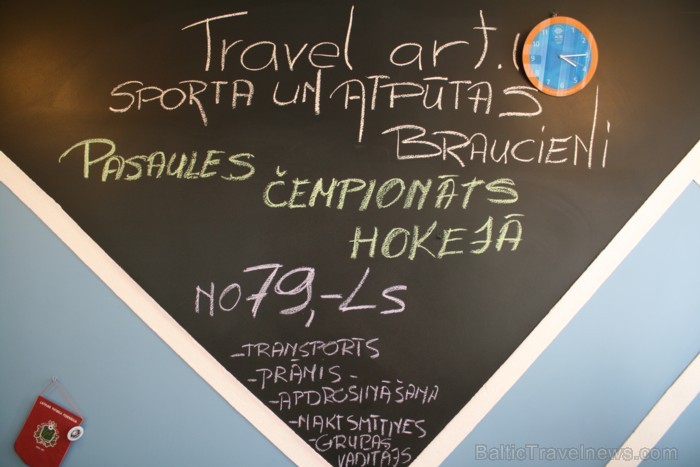 Travel art.
SPORTA UN ATPŪTAS
BRAUCIENI
PASAULES
ČEMPIONĀTS
HOKEJĀ
NO 79,-Ls
-TRANSPORTS
-PRĀMIS-
-APDROŠINĀŠANA
-NAKTSMĪTNES
-GRUPAS
VADĪTĀJS
BalticTravelnews.com